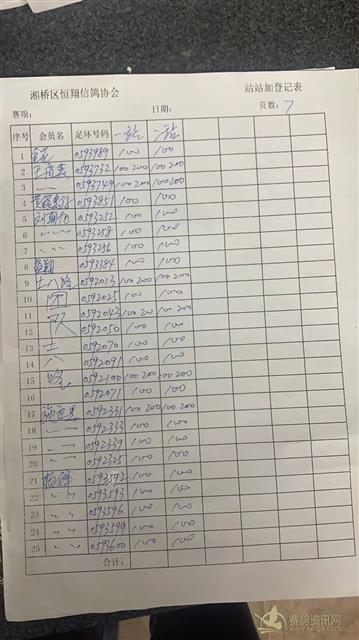 湘桥区恒翔信鸽协会 站站加登记表
赛项: 日期: 页数: 7
序号 会员名 足环号码 一站 二站
1 0593989 100 100
2 0593732 100 200 100 200
3 〃 0593749 100 200 100 200
4 0593851 100 100
5 0593252 100 100
6 〃 〃 〃 0593258 100 100
7 〃 〃 〃 0593236 100 100
8 0593384 100 100
9 十八路 0592013 100 200 100 200
10 团 0592025 100 100
11 0592043 100 200 100 200
12 队 0592050 100 100
13 0592070 100 100
14 八 0592091 100 100
15 路 0592100 100 200 100 200
16 0592071 100 100
17 0592331 100 200 100 200
18 〃 〃 0592333 100 100
19 〃 〃 0592339 100 100
20 〃 〃 0592325 100 100
21 0593592 100 100
22 〃 〃 0593593 100 100
23 〃 〃 0593596 100 100
24 〃 〃 0593599 100 100
25 〃 〃 0593600 100 100
合计:
赛鸽资讯网
www.saige.com